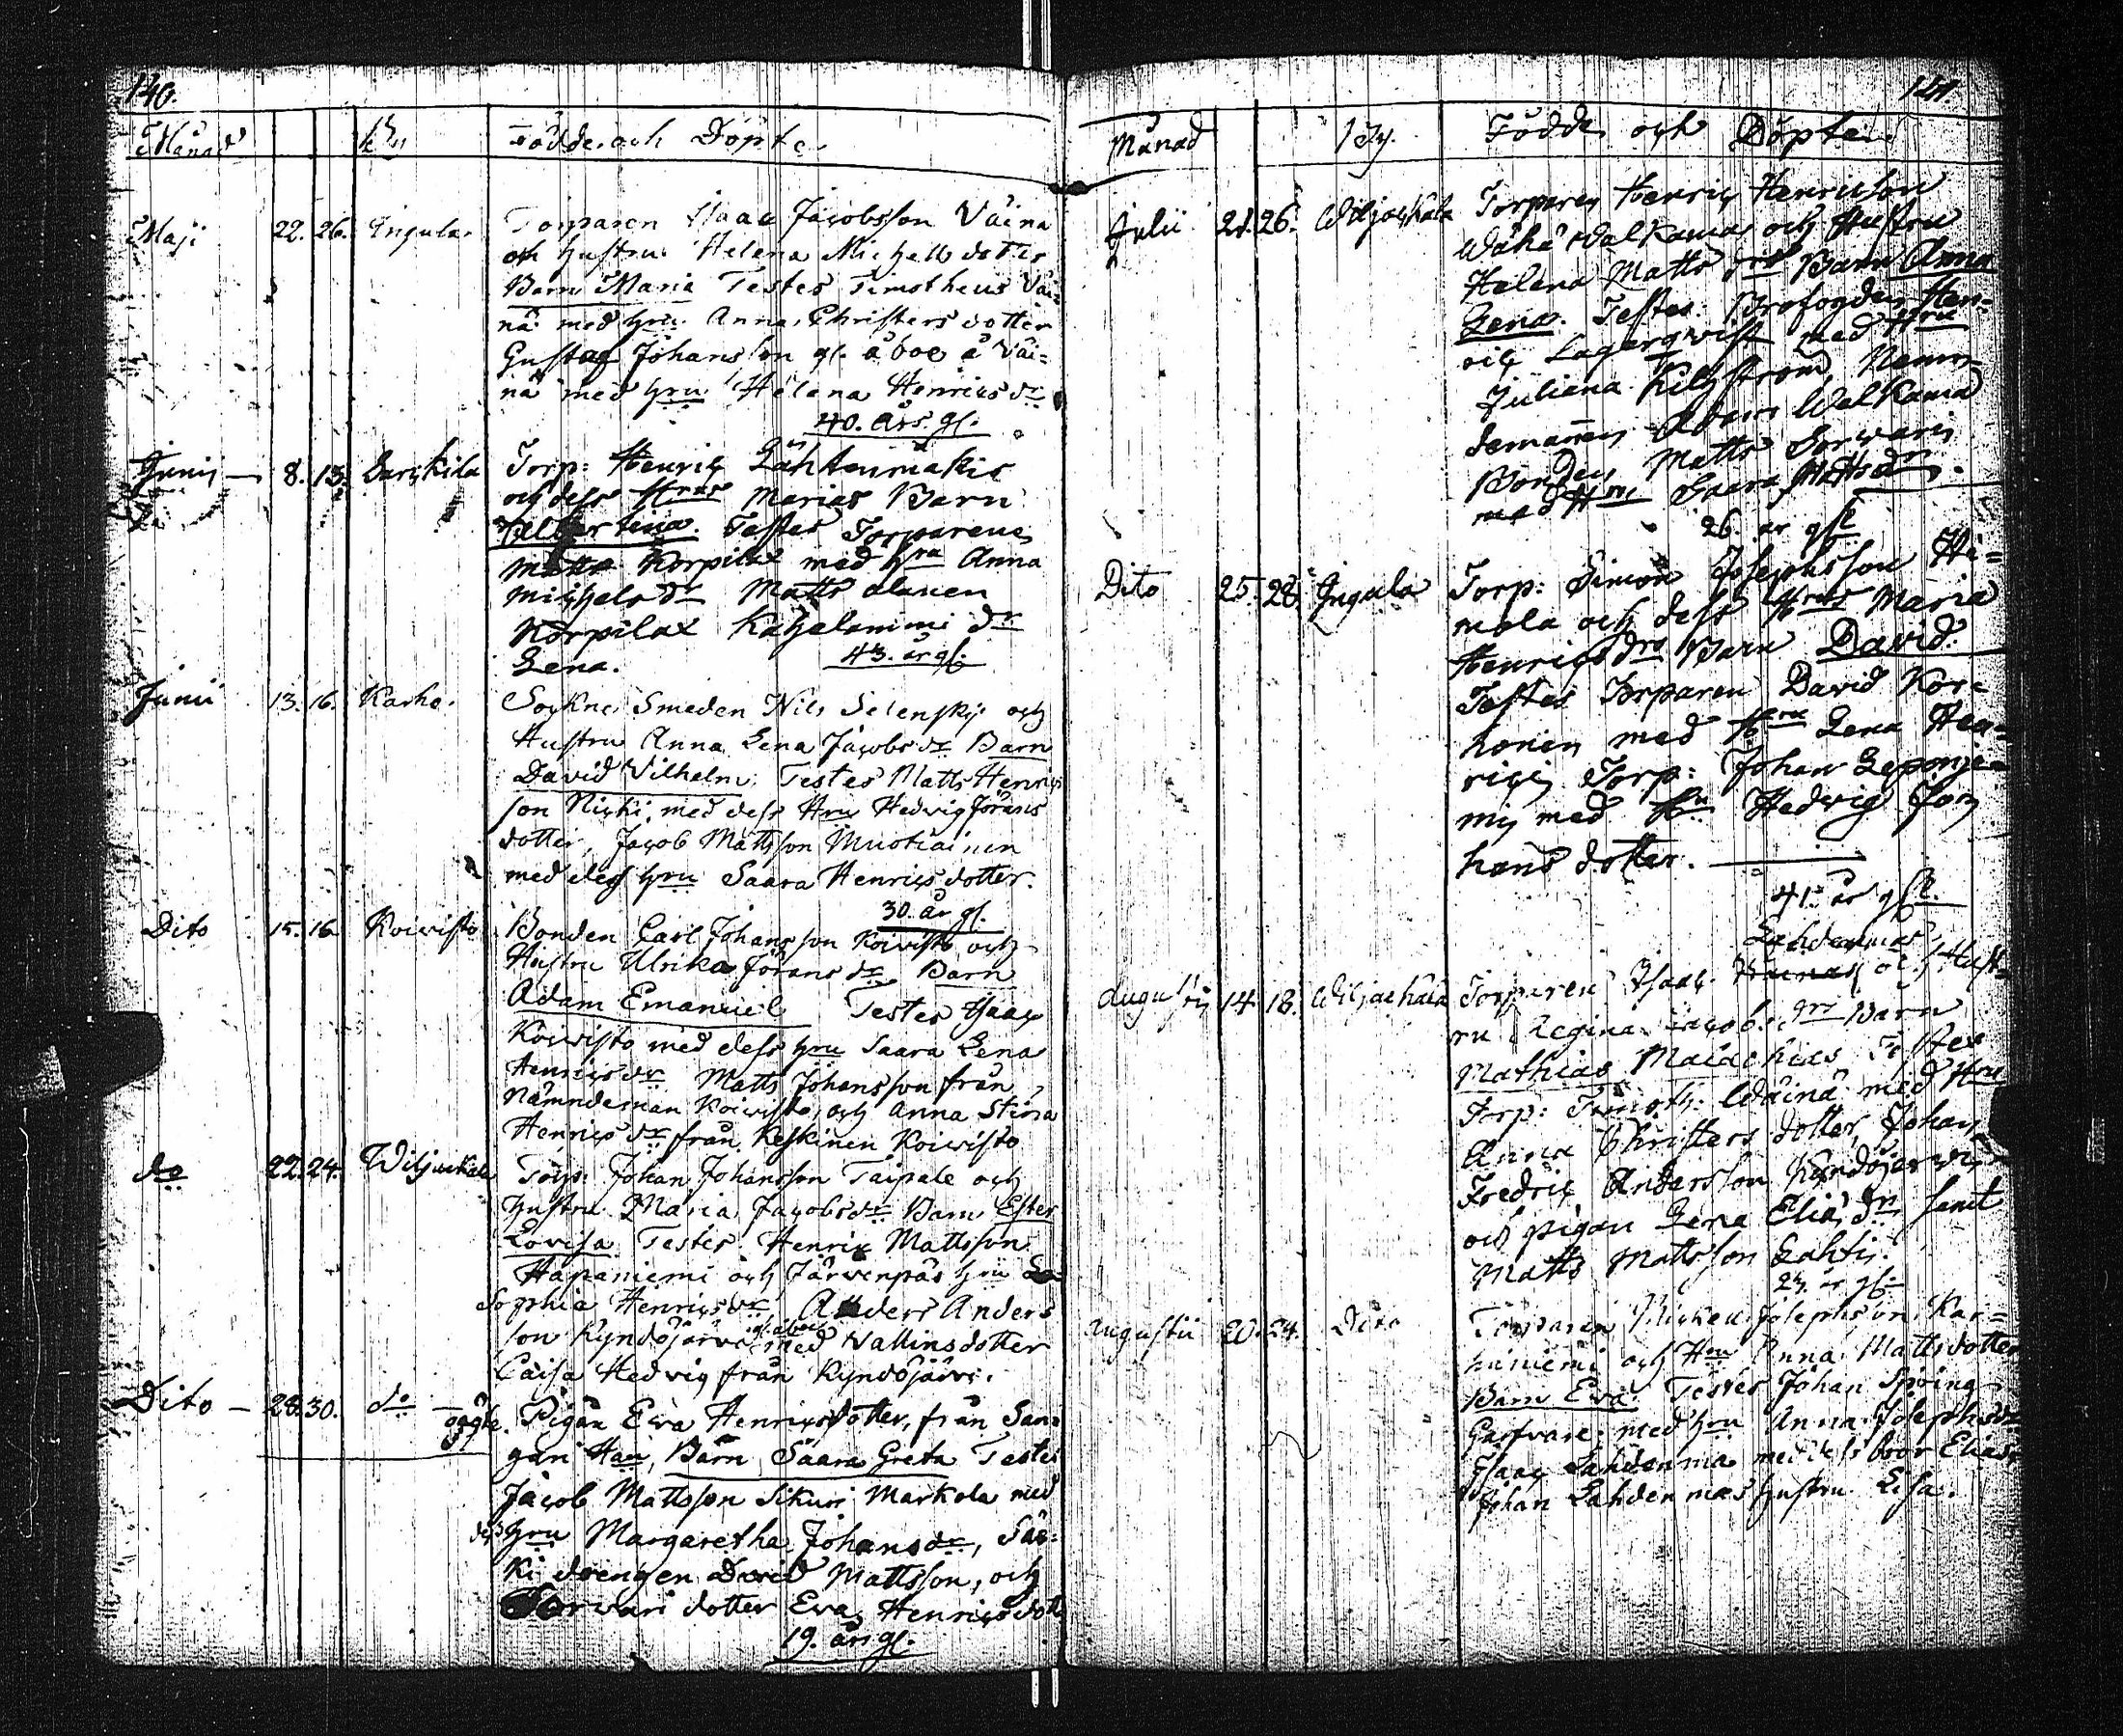 140.
Månad By Födde och Döpte
Maji 22. 26. Ingula. Torparen Isaac Jacobsson Väinä
och hustru Helena Michelsdotters
Barn Maria Testes Timotheus Väi=
nä med hru Anna Christersdotter
Gustaf Johansson gl. åboe å Väi=
nä med hru Helena Henricsdr
40. års gl.
Junij — 8. 13. Sarkila Torp: Henric Lähtenmäkis
och dess Hrus Marias Barn
Albertina. Testes Torparene
Matts Korpilax med hru Anna
Michelsdr Matts
Korpilax Katzelammi dr
Lena. 43. år gl.
Junii 13. 16. Karho. Sockne Smeden Nils Selenskij och
Hustru Anna Lena Jacobsdr Barn
David Vilhelm. Testes Matts Henric
son Nicki, med dess Hru Hedvig Jörans
dotter, Jacob Mattsson Muotiainen
med dess hru Saara Henricsdotter.
30. år gl.
Dito 15. 16 Koivisto Bonden Carl Johansson Koivisto och
Hustru Ulrika Jöransdr Barn
Adam Emanuel Testes Isaac
Koivisto med dess hru Saara Lena
Henricsdr Matts Johansson från
Nämndeman Koivisto, och Anna Stina
Henricsdr från Keskinen Koivisto
do 22. 24. Wiljackala Torp: Johan Johansson Taipale och
hustru Maria Jacobsdr Barn Ester
Lovisa Testes Henric Mattsson
Hapaniemi och Järvenpäs hru
Sophia Henricsdr, Anders Anders
son Kyndöjärvi med Vallinsdotter
Caisa Hedvig från Kyndöjärvi.
Dito — 28. 30. do — oägte. Pigan Eva Henricsdotter, från San=
gari Barn Saara Greta Testes
Jacob Mattsson Sikuri Markola med
dess hru Margaretha Johansdr, Säs=
ki drengen David Mattsson, och
Sorvari dotter Eva Henricsdott
19. års gl.
141.
Månad By. Födde och Döpte
Julii 21. 26. Wiljackala Torparen Henric Henricsson
Wähä Walkamas och Hustru
Helena Matts drs Barn Anna
Lena. Testes: Brofogden Hen=
ric Lagerqvist med Hru
Juliana Kihlström, Nämn
demannen Adam Walkama
Bonden Matts Sorwari
med Hru Saara Mattsdr.
26. år gl
Dito 25. 28. Ingula Torp: Simon Josephsson Hi=
mola och dess Hrus Maria
Henricsdrs Barn David.
Testes Torparen David Kor=
honen med Hru Lena Hen=
rici, Torp: Johan Leponie=
mi med Hru Hedvig Jo
hans dotter.
41. år gl.
Lahdenmas
Augusti 14. 18. Wiljackala Torparen Isaac och Hust=
ru Regina Jacobs drs Barn
Mathias Malachias Testes
Torp: Timoth: Wäinä med Hru
Anna Christers dotter, Johan
Fredric Andersson Kyndöjerwi
och pigan Lena Eliæ dr samt
Matts Mattsson Lahtis.
24. år gl.
Augustii 20. 24. Dito Torparen Michel Josephsson Kar=
hiniemi och Hru Anna Mattsdotter
Barn Eva. Testes Johan Spring
Garfvare, med hru Anna Josephsdr
Isaac Lahdenma med dess bror Elias
Johan Lahdenmas hustru Lisa.